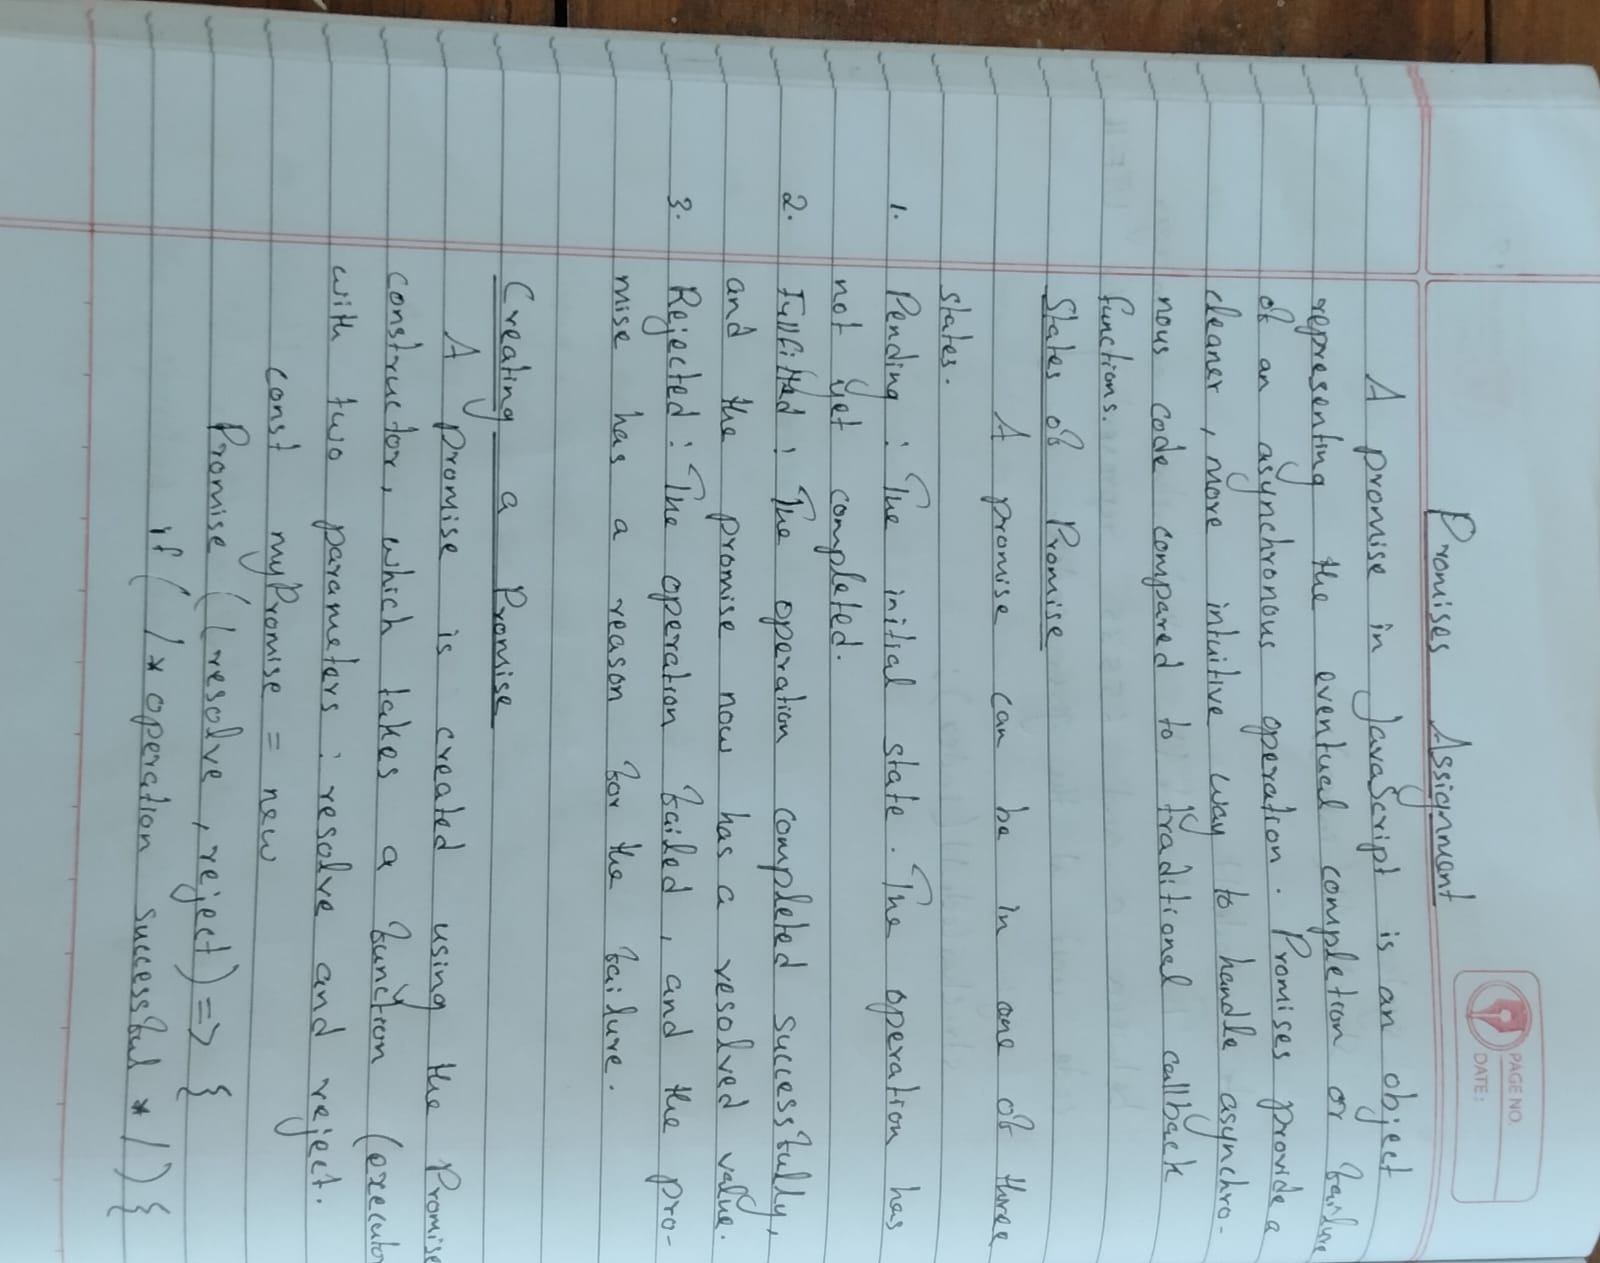 PAGE NO.
DATE:
Promises Assignment
A promise in JavaScript is an object
representing the eventual completion or failure
of an asynchronous operation. Promises provide a
cleaner, more intuitive way to handle asynchro-
nous code compared to traditional callback
functions.
States of Promise
A promise can be in one of three
states.
1. Pending : The initial state. The operation has
not yet completed.
2. Fullfilled : The operation completed successfully,
and the promise now has a resolved value.
3. Rejected : The operation failed, and the pro-
mise has a reason for the failure.
Creating a Promise
A promise is created using the Promise
constructor, which takes a function (executor
with two parameters : resolve and reject.
const myPromise = new
Promise ((resolve, reject) => {
if ( /* operation successful */ ) {